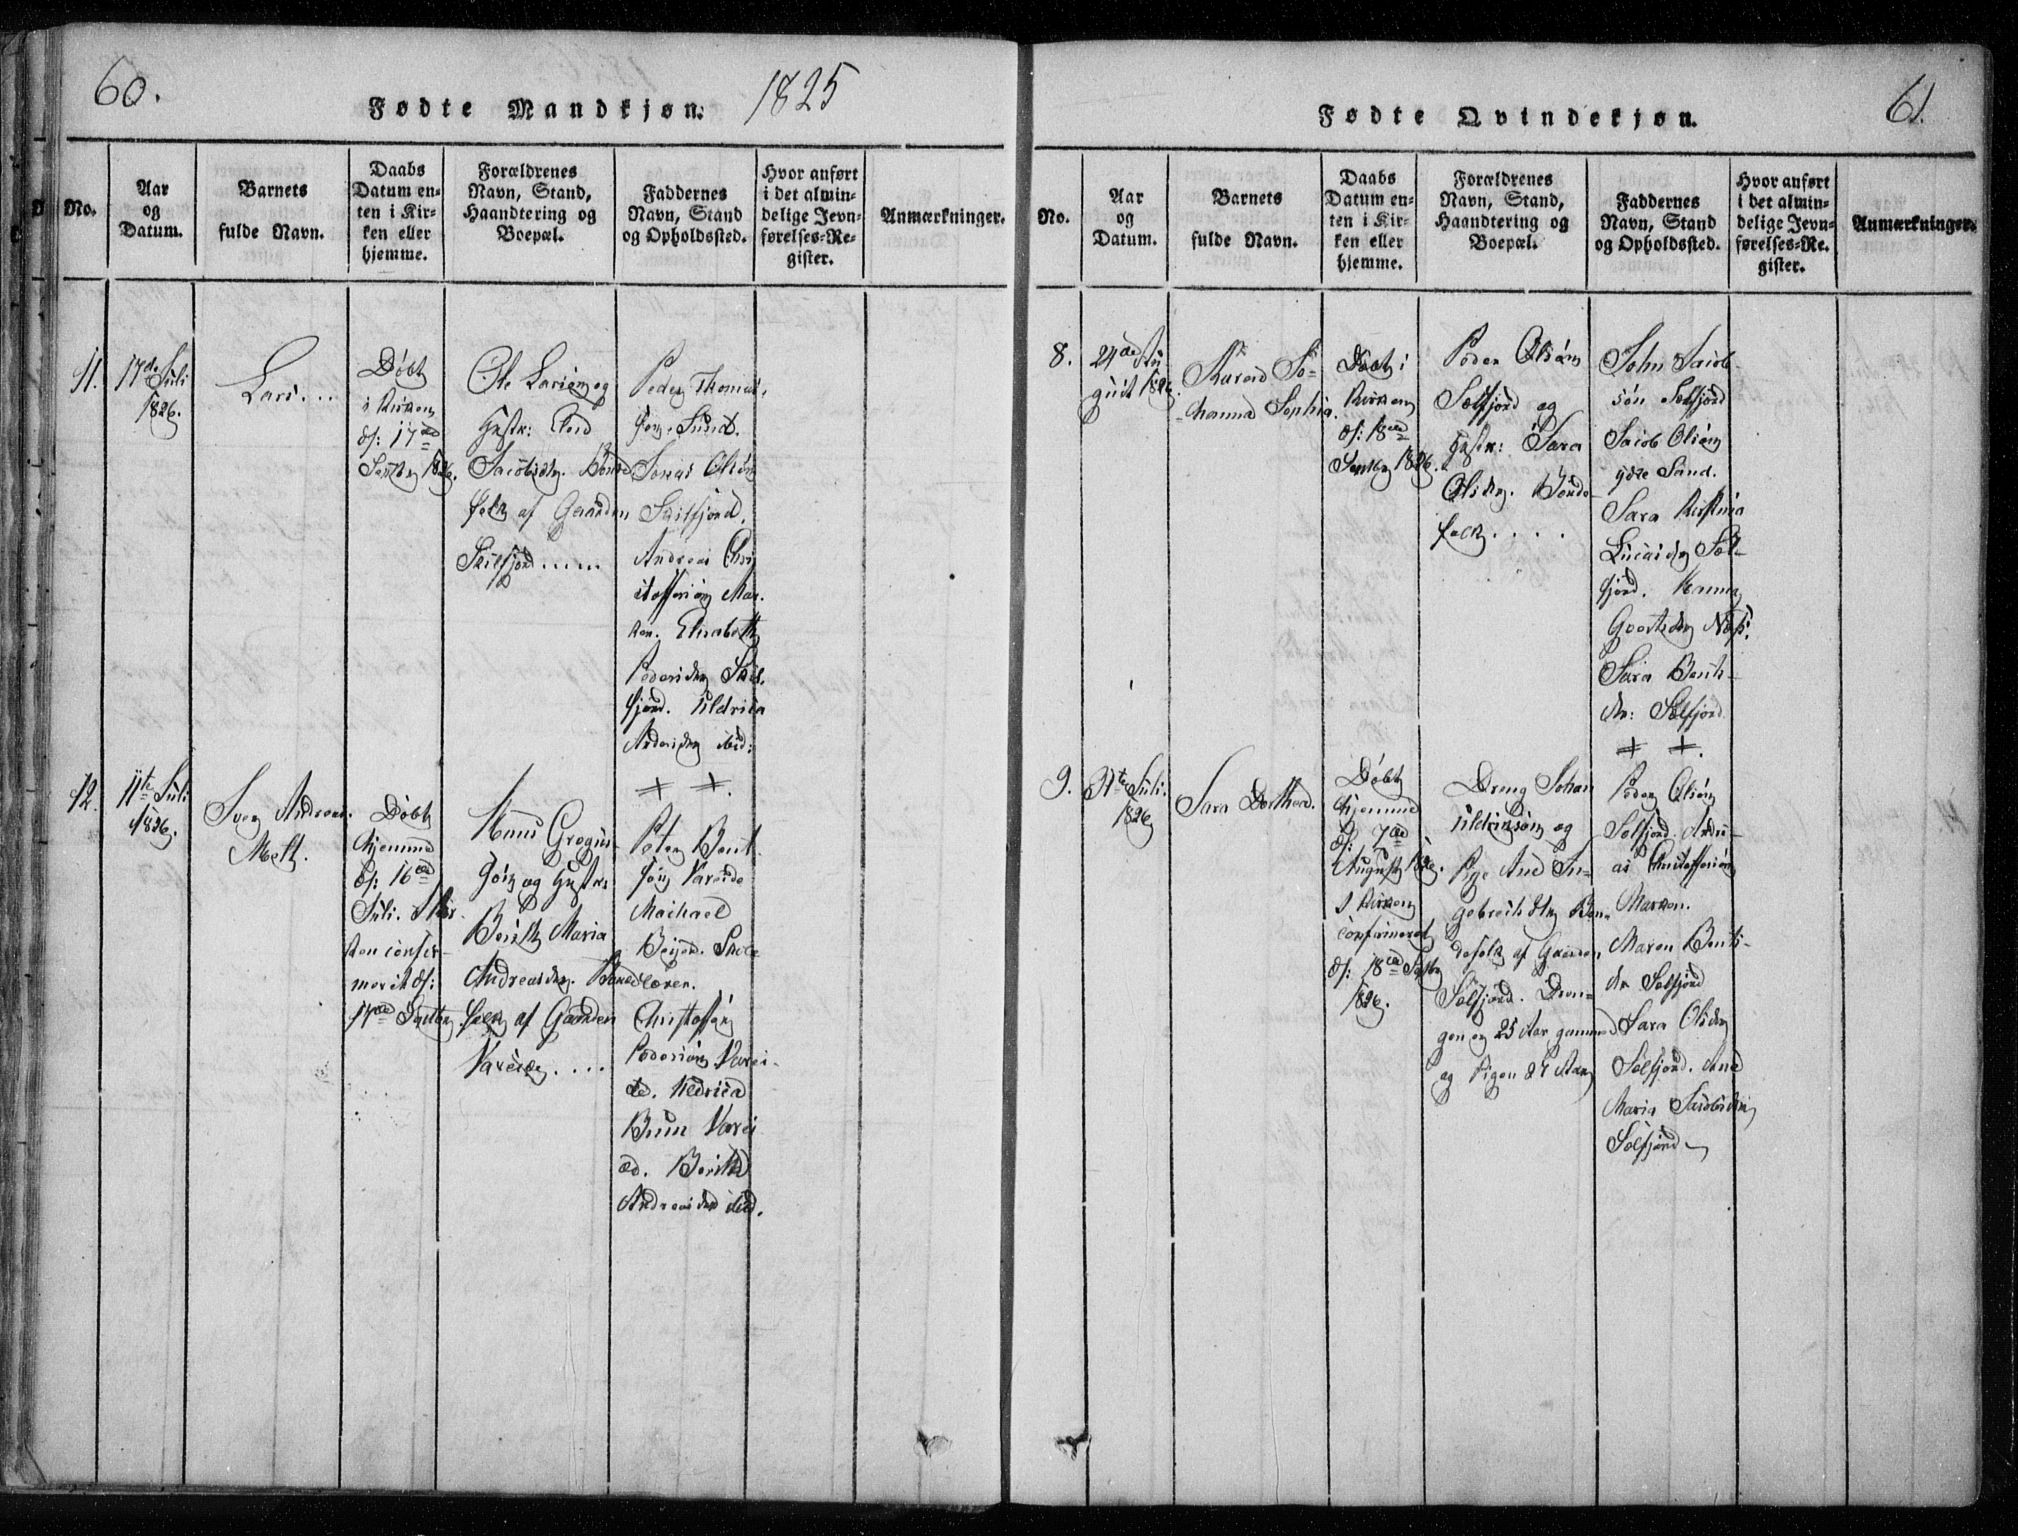 60.
Fødte Mandkjøn.
1825
No.
Aar
og
Datum.
Barnets
fulde Navn.
Daabs
Datum en-
ten i Kir-
ken eller
hjemme.
Forældrenes
Navn, Stand,
Haandtering og
Boepæl.
Faddernes
Navn, Stand
og Opholdssted.
Hvor anført
i det almin-
delige Jevn-
førelses-Re-
gister.
Anmærkninger.
11.
17de Juli
1826.
Lars...
Døbt
i Kirken
d: 17de
Septbr 1826.
Ole Larsen og
Hustr:
Jacobsdtr. Bønde
folk af Gaarden
Skilfjord.....
Peder Thomas.
sen. Sund.
Jonas Olsøn
Skilfjord.
Andreas Chri
stoffersøn Mar.
ken. Elisabeth
Pedersdtr Skil.
fjord. Uldrica
Andersdtr ibid:
12.
11te Juli
1826.
Sven Andreas.
Meth.
Døbt
hjemme
d: 16de
Juli. I Kir.
ken confir-
meret d:
17de Septbr.
Hans Gregus
søn og Hustr:
Berith Maria
Andreasdtr. Bønde
folk af Gaarden
Vareide....
+ +.
Peter Bent.
søn Vareide
Michael
Beijer. Skole
lærer.
Christoffer
Pedersøn Varei-
de. Uldrica
Bum Varei
de. Berith
Andreasdtr ibid.
Fødte Qvindekjøn.
61.
No.
Aar
og
Datum.
Barnets
fulde Navn.
Daabs
Datum en-
ten i Kir-
ken eller
hjemme.
Forældrenes
Navn, Stand,
Haandtering og
Boepæl.
Faddernes
Navn, Stand
og Opholdssted.
Hvor anført
i det almin-
delige Jevn-
førelses-Re-
gister.
Anmærkninger.
8.
24de Au
gust 1826.
Karen Jo-
hanna Sophia.
Døbt i
Kirken
d: 18de
Septbr 1826.
Peder Olsøn
Sælfjord og
Hustr: Sara
Olsdtr. Bønde
folk....
John Jacob-
søn Sælfjord
Jacob Olsøn
ydre Sand.
Sara Kirstina
Lucasdtr Sæl-
fjord. Hanna
Goertsdtr Næs.
Sara Bents-
dtr: Sælfjord
+ +.
9.
31te Juli.
1826
Sara Dorthea.
Døbt
hjemme
d: 7de
August 1826.
I Kirken
confirmeret
d: 18de Septbr
1826.
Dreng Johan
Uldriksøn og
Pige Ane In-
gebrechtsdtr Bøn-
defolk af Gaarden
Sælfjord. Dren-
gen er 25 Aar gammel
og Pigen 27 Aar
Peder Olsøn
Sælfjord. Andre-
as Christoffersøn
Marken.
Maren Bents-
dtr Sælfjord
Sara Olsdtr
Sælfjord. Ane
Maria Jacobsdtr
Sælfjord